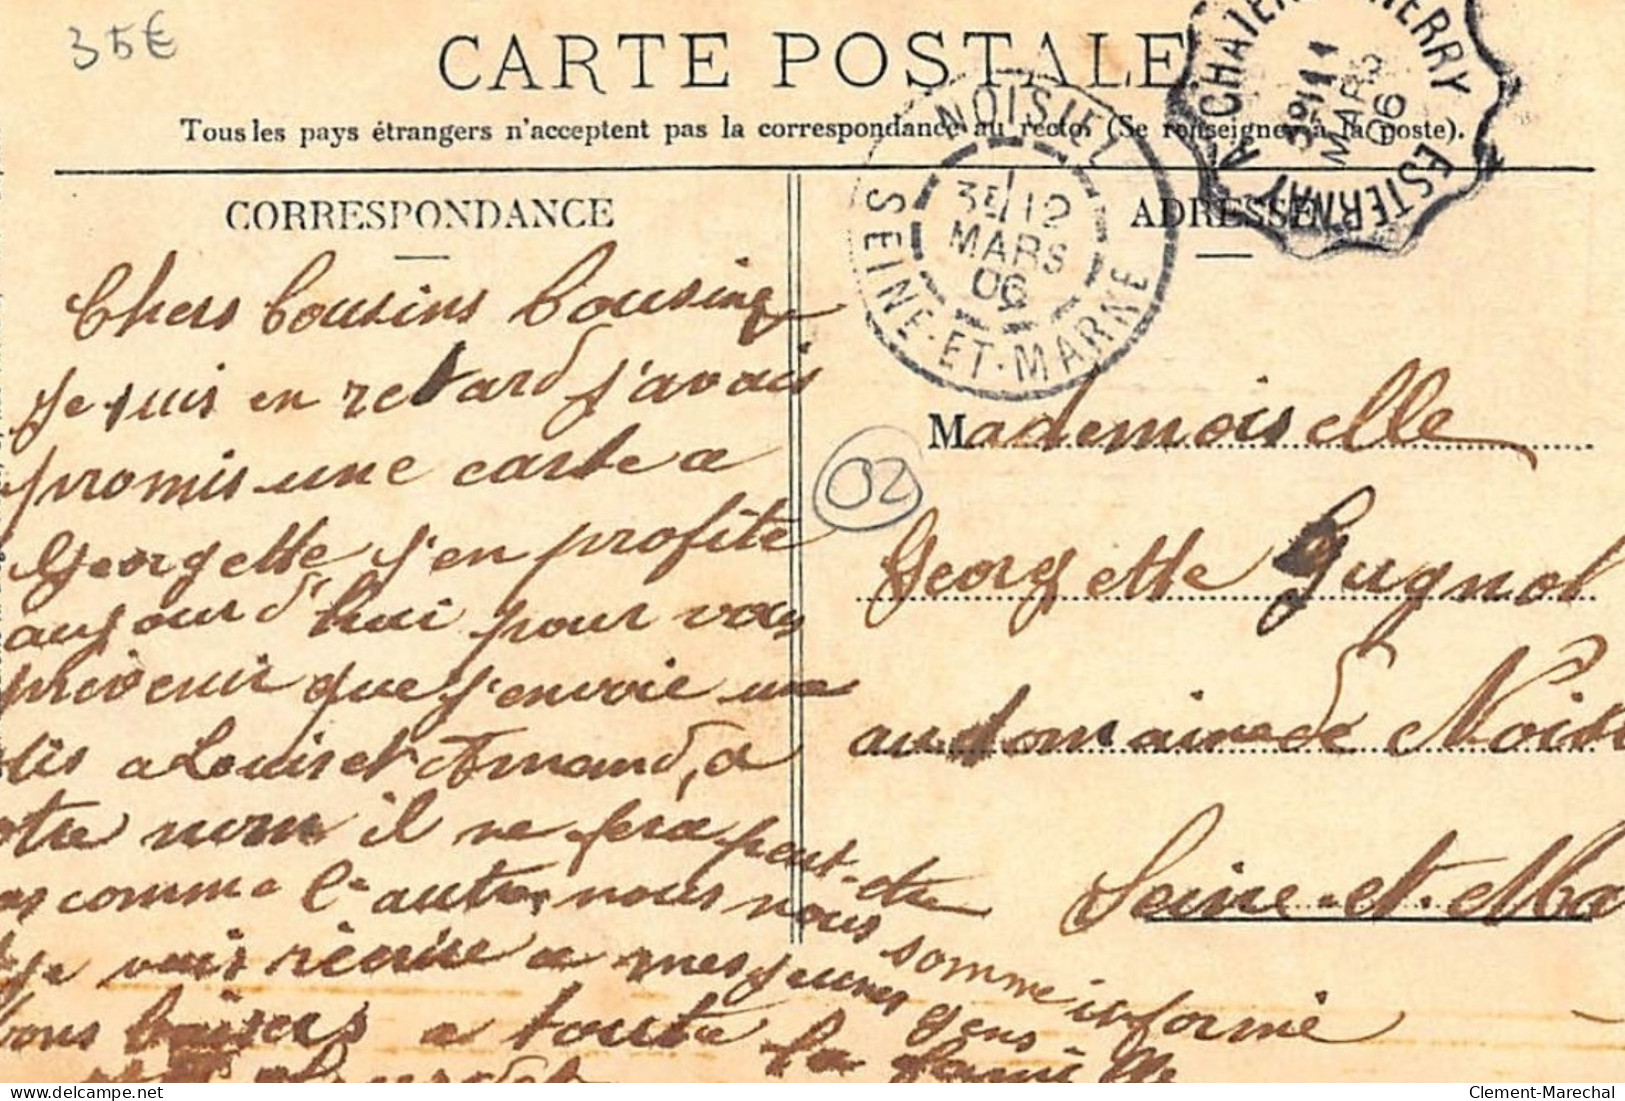 35€
CARTE POSTALE
Tous les pays étrangers n'acceptent pas la correspondance au recto. (Se renseigner à la poste).
CORRESPONDANCE
ADRESSE
NOISIEL
12
MARS
06
SEINE-ET-MARNE
CHATEAU THIERRY A ESTERNAY
MARS
06
Chers Cousins Cousine
Je suis en retard j'avais
promis une carte a
Georgette j'en profite
aujourd'hui pour vous
prévenir que j'envoie un
colis a Louis et Armand, a
otre nom il ne fera peut-etre
as comme l'autre, nous nous somme informé
je vais écrire a mes jeunes gens
vous baisers a toute la famille
Mademoiselle
02
Georgette Gugnol
au domaine de Noisi
Seine-et-Ma
Clement-Marechal